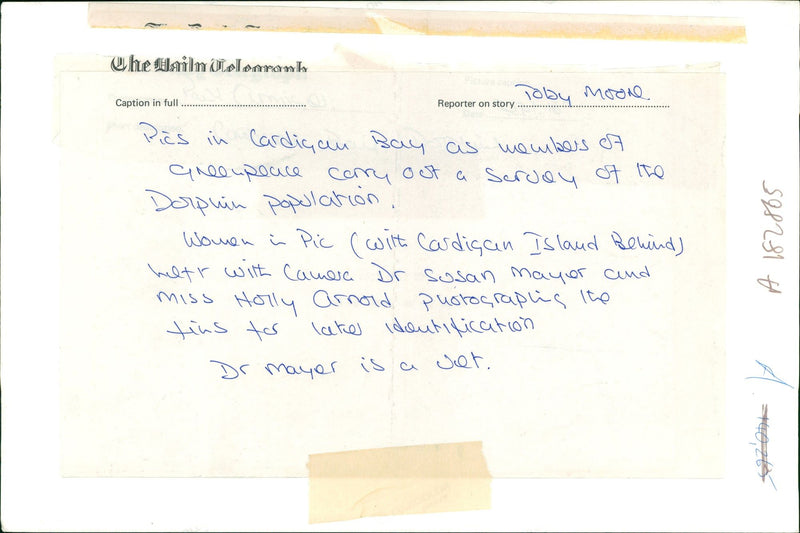 The Daily Telegraph
Caption in full
Reporter on story Toby Moore.
Pics in Cardigan Bay as members of
Greenpeace carry out a survey of the
Dolphin population.
Women in Pic (with Cardigan Island Behind)
left with Camera Dr Susan Mayer and
Miss Holly Arnold photographing the
fins for later identification
Dr Mayer is a vet.
A 182865
A